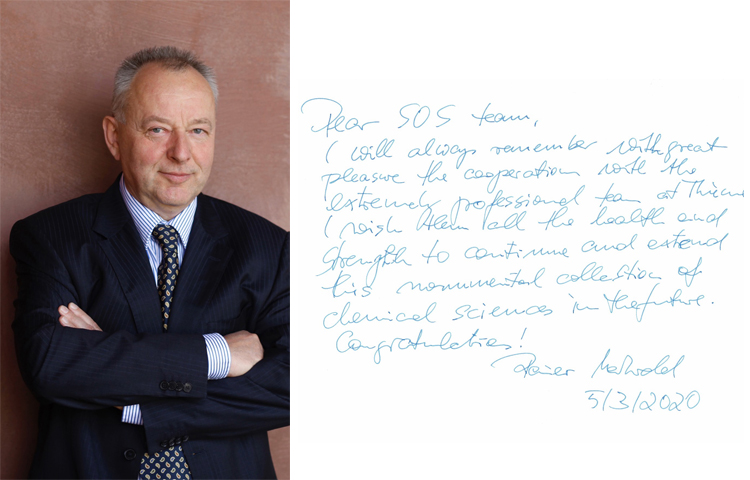 Dear SOS team,
I will always remember with great
pleasure the cooperation with the
extremely professional team at Thieme
I wish them all the health and
strength to continue and extend
this monumental collection of
chemical sciences in the future.
Congratulations!
Rainer
5/3/2020